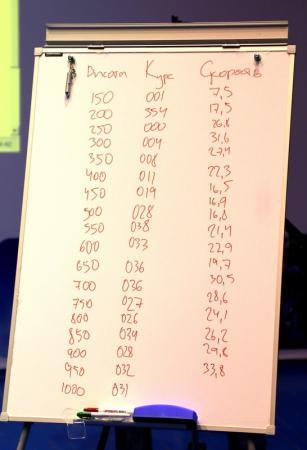 Дистан Курс Скорость
150 001 7,5
200 354 17,5
250 000 26,8
300 004 31,6
350 008 27,4
400 011 22,3
450 019 16,5
500 028 16,9
550 038 16,8
600 033 21,4
650 036 22,9
700 036 19,7
750 027 30,5
800 026 28,6
850 034 24,1
900 028 26,2
950 032 29,8
1000 031 33,8